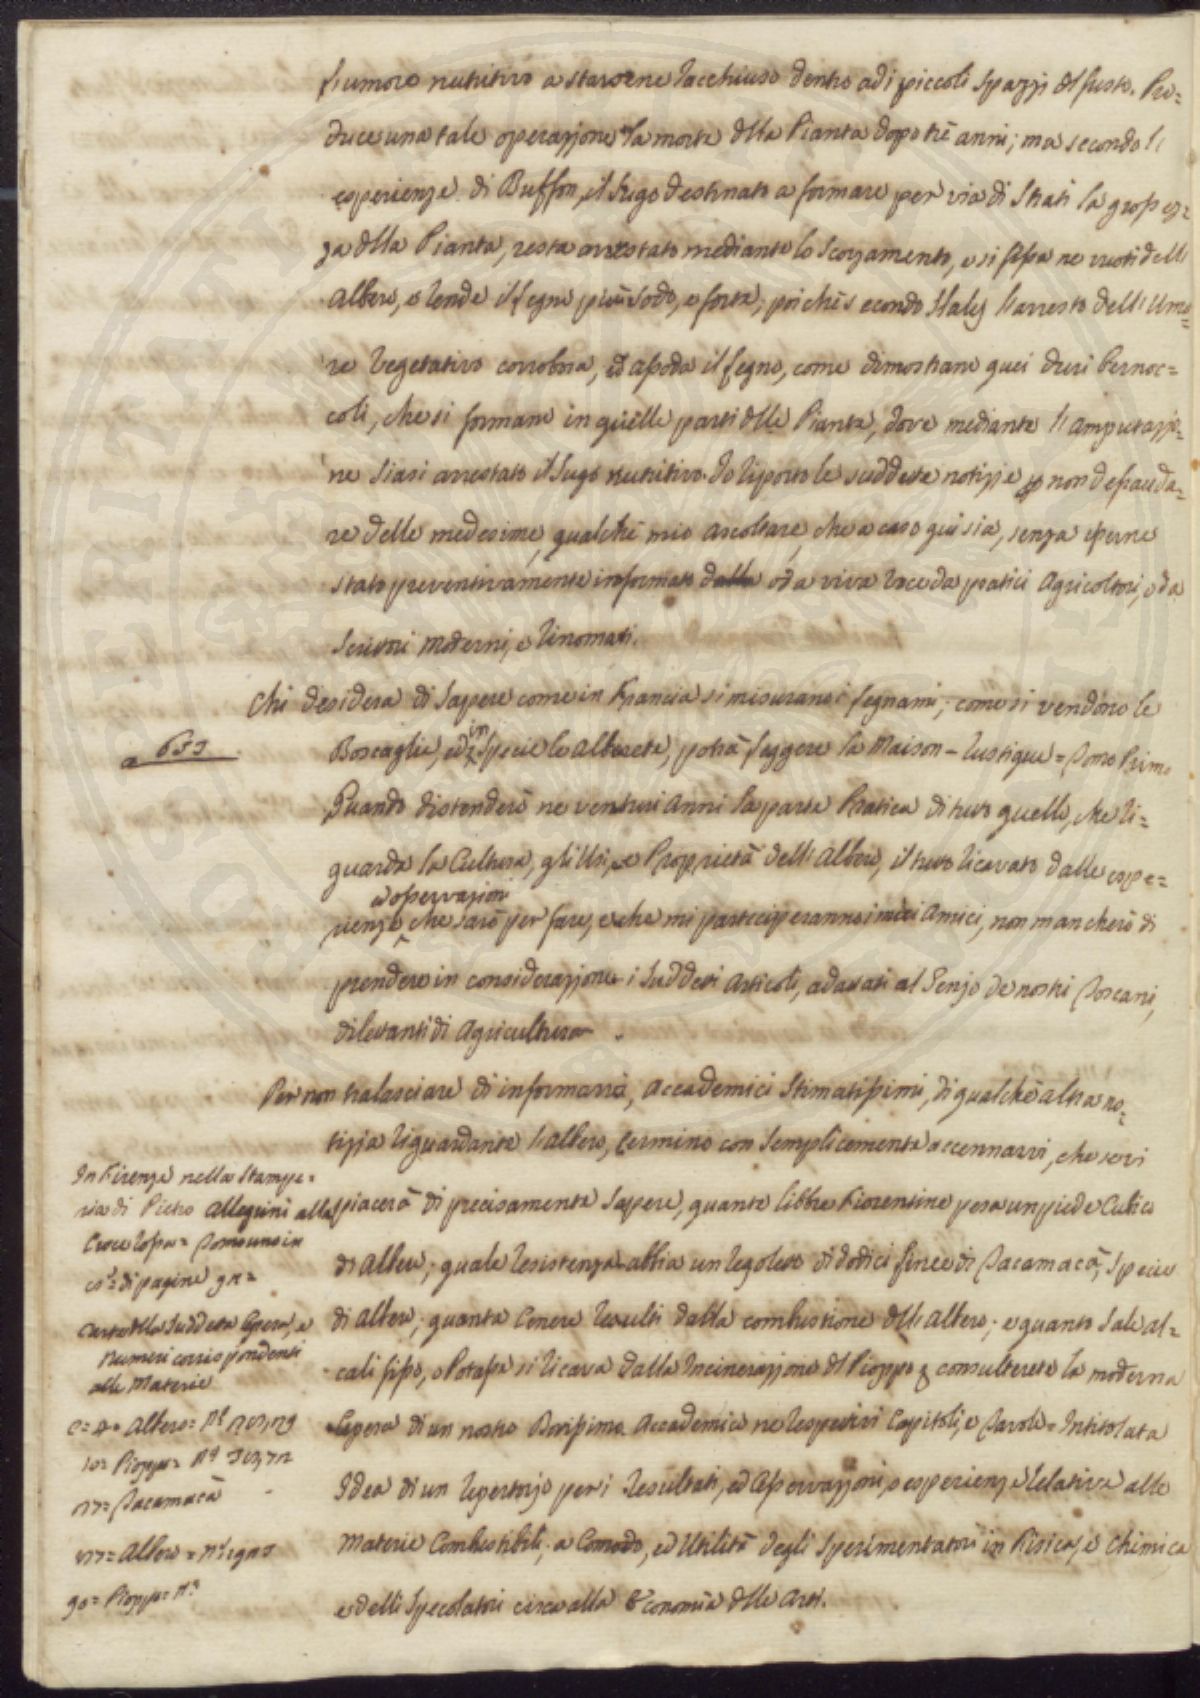 l'umore nutritivo a starsene racchiuso dentro ad i piccoli spazzj del fusto. Pro=
duce una tale operazzione la morte della Pianta dopo trè anni; ma secondo l'
esperienze di Buffon, il sugo destinato a formare per via di strati la grossez=
za della Pianta, resta arrestato mediante lo scorzamento, e si fissa ne vuoti dell'
Albero, e rende il legno più sodo, e forte; poichè secondo Hales l'arresto dell' Umo=
re Vegetativo corrobora, ed assoda il legno, come dimostrano quei duri bernoc=
coli, che si formano in quelle parti delle Piante, dove mediante l'amputazzio=
ne siasi arrestato il sugo nutritivo. Io riporto le suddette notizie per non defrauda=
re delle medesime, qualche mio ascoltare, che a caso quì sia, senza esserne
stato preventivamente informato dalla o da viva voce da pratici Agricoltori, e da
scrittori moderni, e rinomati.
Chi desidera di sapere come in Francia si misurano i legnami; come si vendono le
a 653
Boscaglie, ed in specie le Alberete, potrà leggere la Maison = rustique = Tomo Primo
Quando distenderò ne venturi Anni la parte Pratica di tutto quello, che ri=
guarda la Cultura, gl'Usi, e Proprietà dell' Albero, il tutto ricavato dalle espe=
e osservazioni
rienze che sarò per fare, e che mi parteciperanno i miei Amici, non mancherò di
prendere in considerazzione i suddetti Articoli, adattati al Genio de nostri Toscani,
dilettanti di Agricultura.
Per non tralasciare di informarvi, Accademici Stimatissimi, di qualche altra no=
tizia riguardante l'Albero, termino con semplicemente accennarvi, che se vi
piacerà di precisamente sapere, quante libbre Fiorentine pesa un piede Cubico
di Albero; quale resistenza abbia un regoletto di dodici linee di Tacamacà, specie
di Albero; quanta Cenere resulti dalla combustione dell' Albero; e quanto Sale al=
cali fisso, o Potassa si ricava dalla Incinerazzione del Pioppo consulterete la moderna
Opera di un nostro Bravissimo Accademico ne respettivi Capitoli, e Tavole = Intitolata
Idea di un Repertorjo per i Resultati, ed Osservazzioni, o esperienze relative alle
Materie Combustibili; a Comodo, ed Utilità degli Sperimentatori in Fisica, e Chimica
e delli Specolatori circa alla Economia delle Arti.
In Firenze nella Stampe=
ria di Pietro Allegrini alla
Croce Rossa = Tomo uno in
di pagine
Carte della suddetta Opera, e
Numeri corrispondenti
alle Materie
Albero =
10 = Pioppo =
Tacamacà
Albero =
90 = Pioppo = N.°